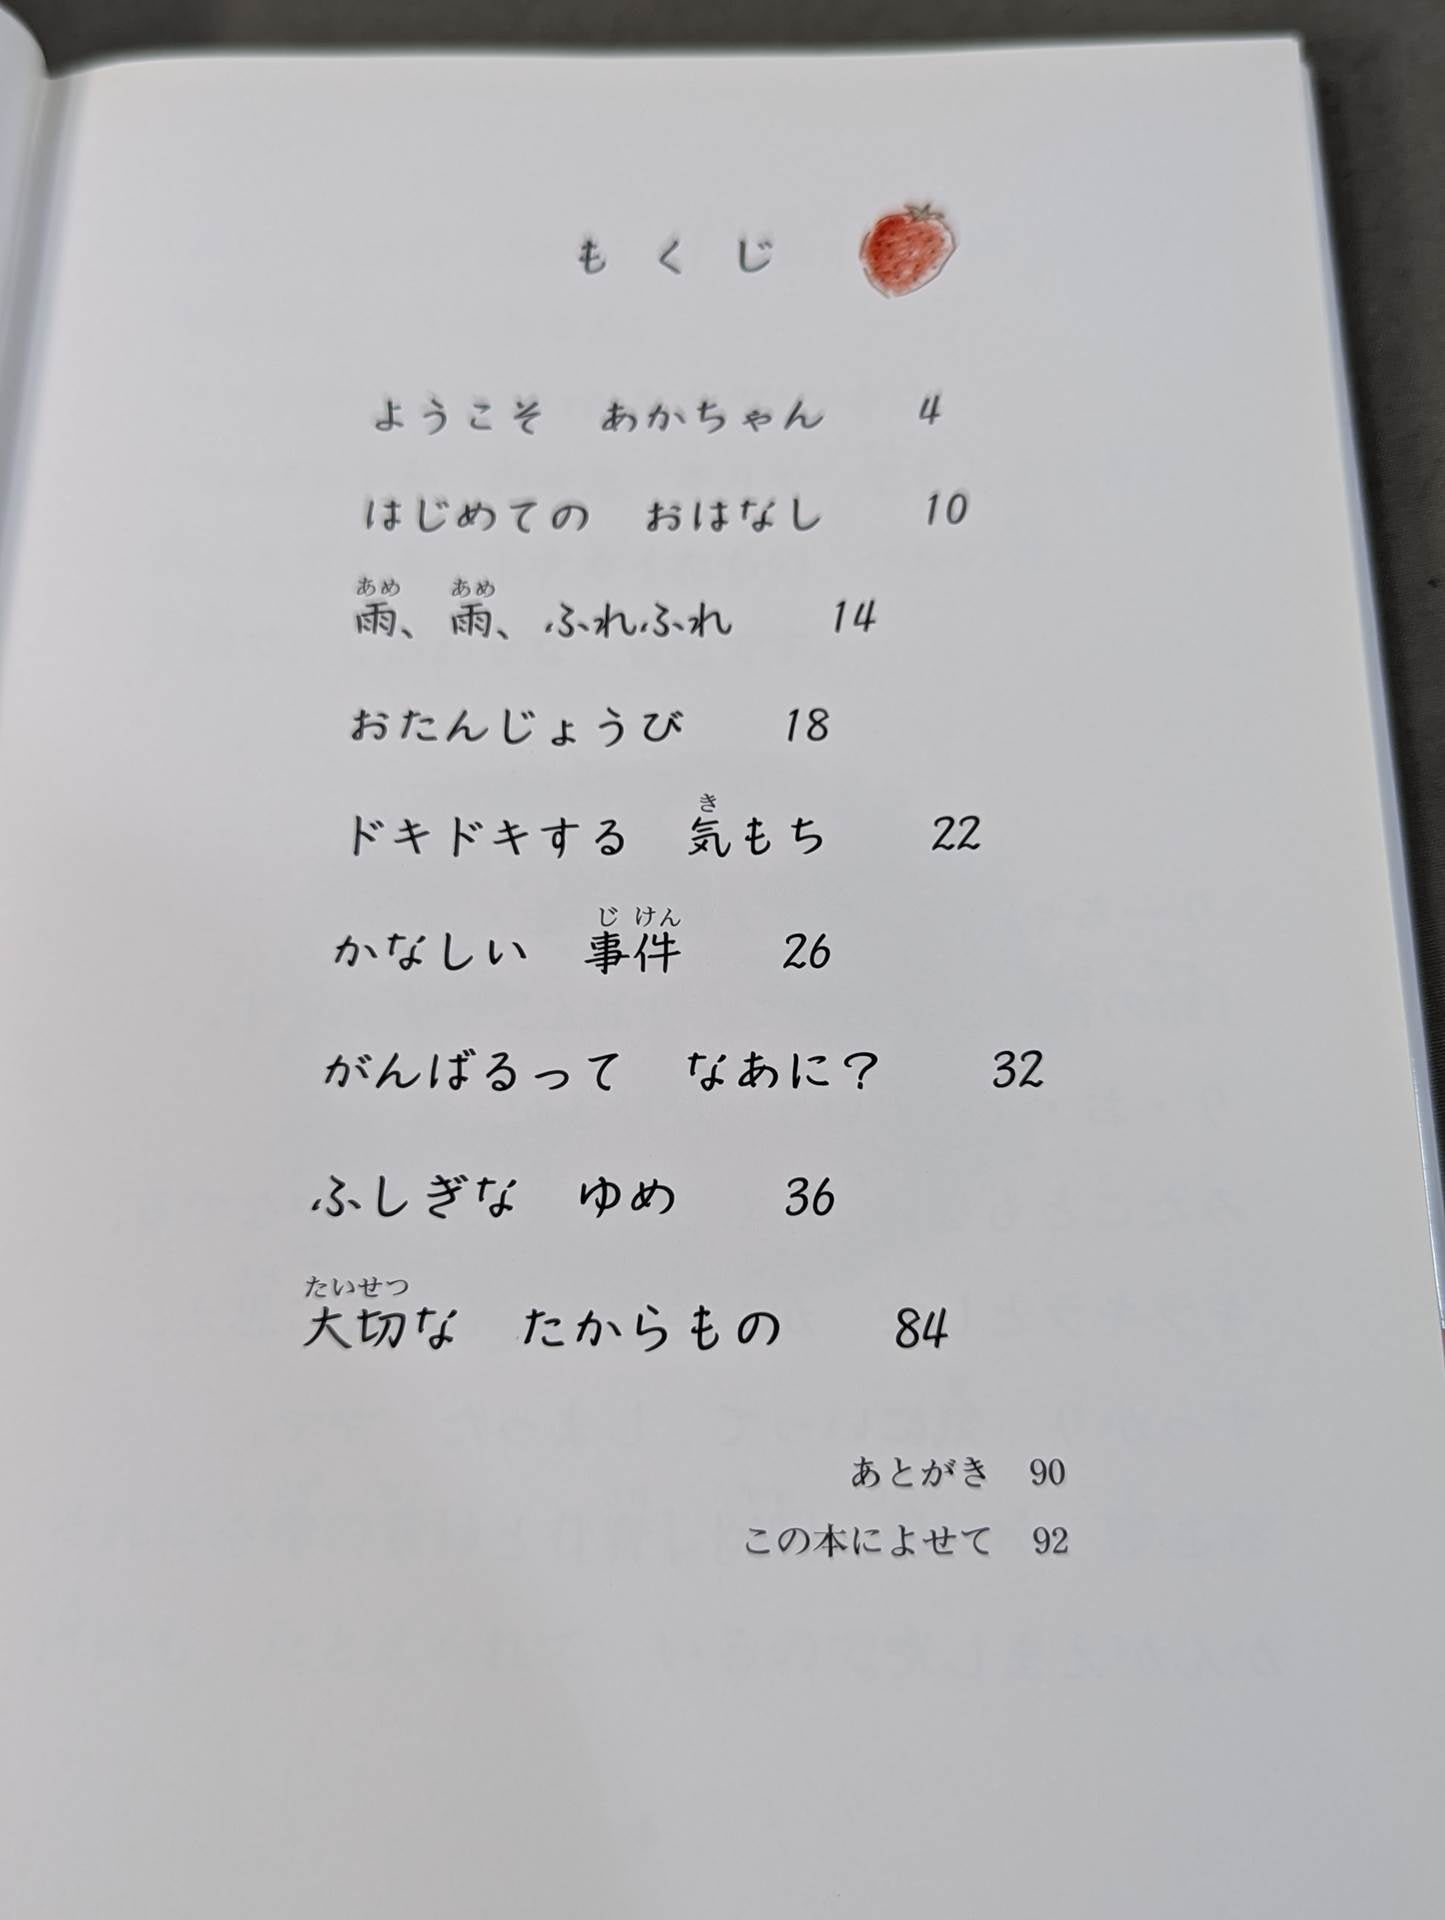 もくじ
ようこそ　あかちゃん　4
はじめての　おはなし　10
あめ　あめ
雨、雨、ふれふれ　14
おたんじょうび　18
き
ドキドキする　気もち　22
じけん
かなしい　事件　26
がんばるって　なあに？　32
ふしぎな　ゆめ　36
たいせつ
大切な　たからもの　84
あとがき　90
この本によせて　92